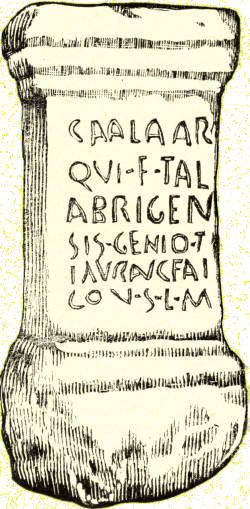 CAALAAR
QVI·F·TAL
ABRIGEN
SIS·GENIO·T
IAVRANCFAI
COV·S·L·M